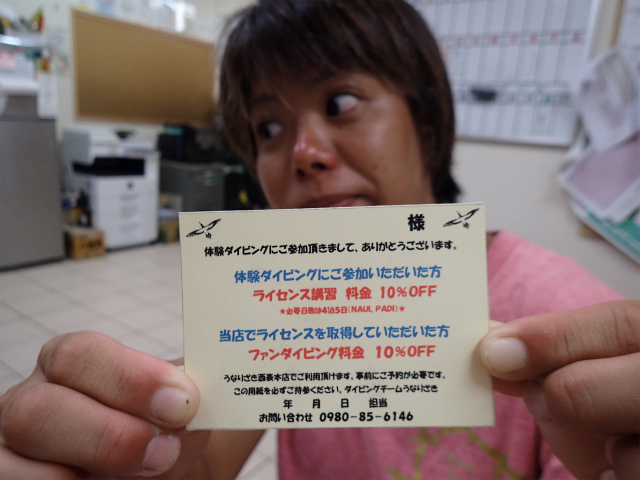 様
体験ダイビングにご参加頂きまして、ありがとうございます。
体験ダイビングにご参加いただいた方
ライセンス講習 料金 10%OFF
★必要日数は4泊5日(NAUI、PADI)★
当店でライセンスを取得していただいた方
ファンダイビング料金 10%OFF
うなりざき西表本店でご利用頂けます。事前にご予約が必要です。
この用紙を必ずご持参ください。ダイビングチームうなりざき
年 月 日 担当
お問い合わせ 0980-85-6146